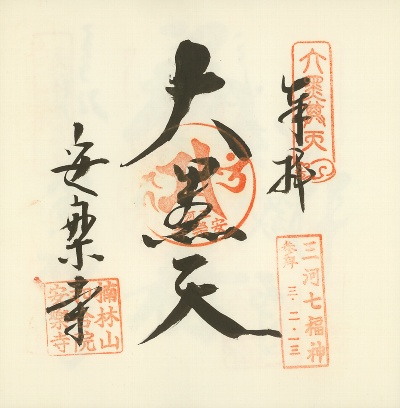 奉拝
大黒天
安楽寺
三河七福神
参拝 三・二・一三
楠林山
安楽寺